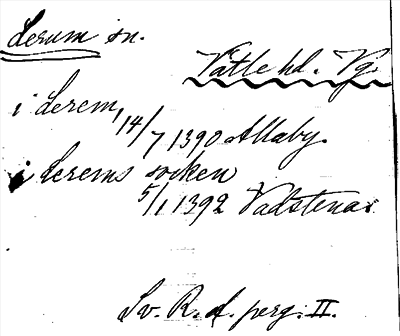 Lerum sn.
Vättle hd. Vg.
i Lerem, 14/7 1390 Allaby.
i Lerems socken
5/1 1392 Vadstena.
Sv. R. A. perg. II.